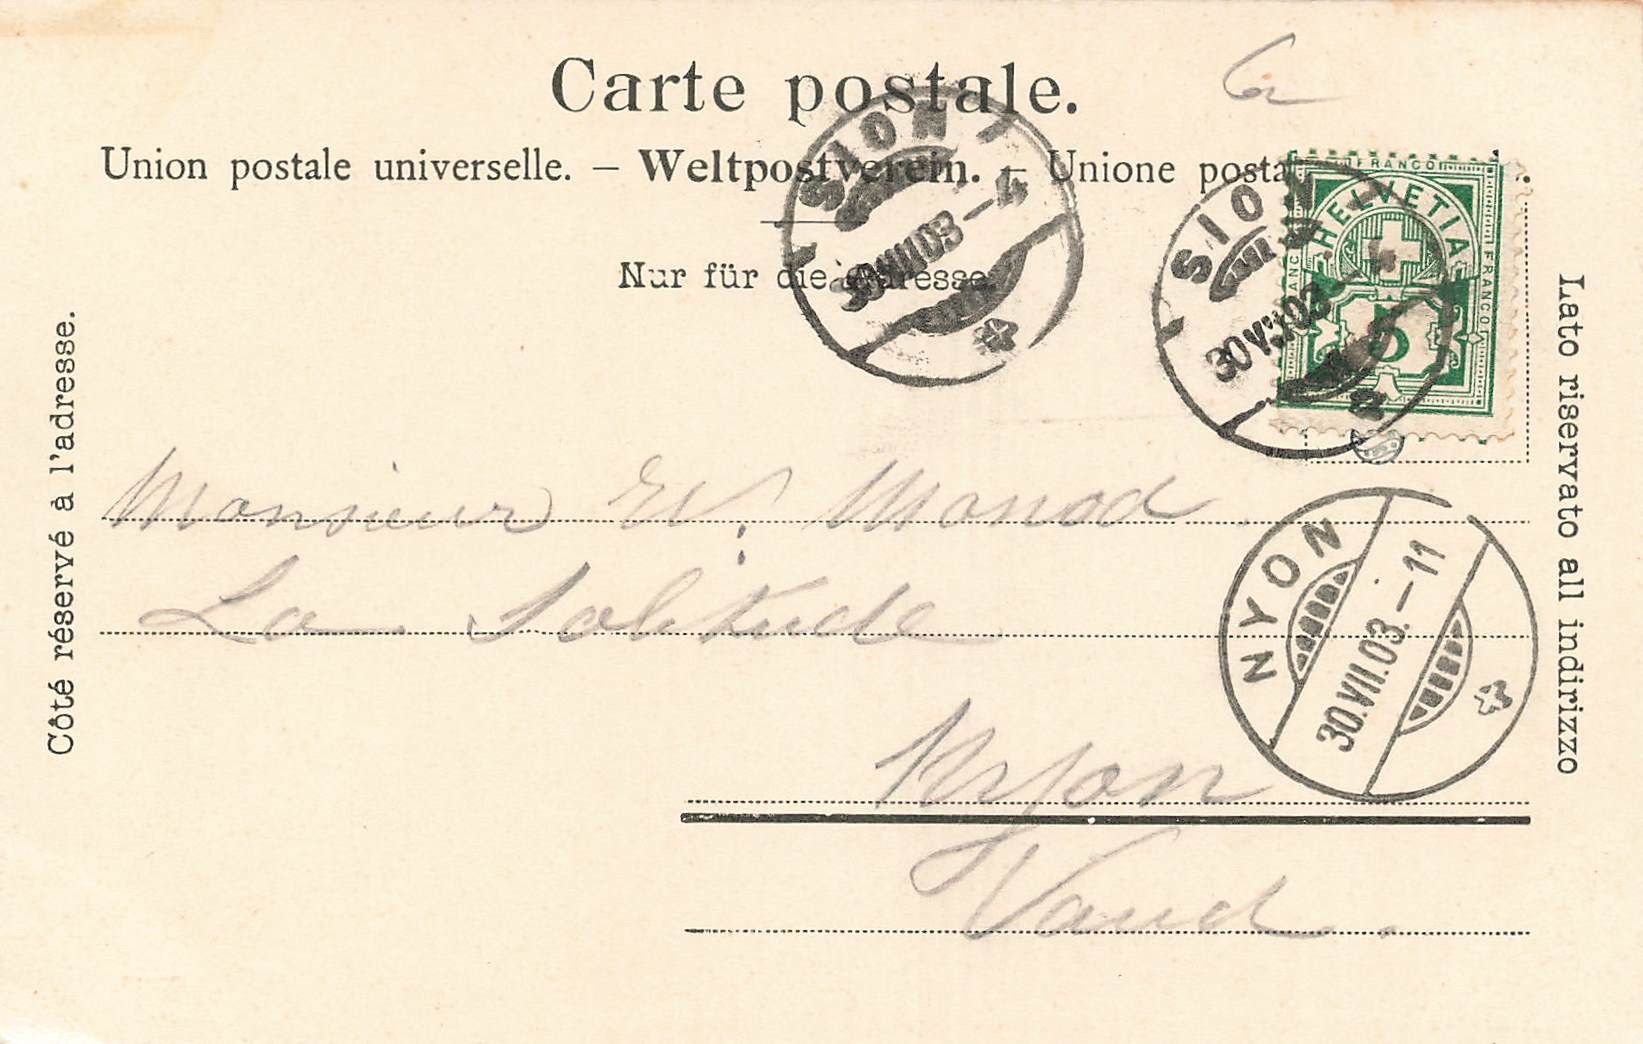 Carte postale.
Union postale universelle. – Weltpostverein. – Unione posta
Nur für die Adresse.
Côté réservé à l'adresse.
Lato riservato all indirizzo
SION 1
30.VII.03.–4
SION 1
30.VII.03.–4
FRANCO
FRANCO
FRANCO
HELVETIA
5
NYON
30.VII.03.–11
Monsieur W. Monod
La Solitude
Nyon
Vaud.